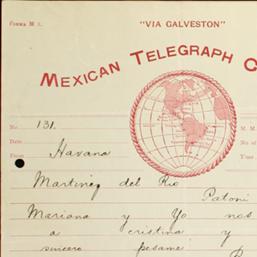 FORMA M 1.
"VIA GALVESTON"
MEXICAN TELEGRAPH C
No. 131.
M. M.
Date
No. of
From Havana
Martinez del Rio
Patoni
Mariana y Yo nos
a cristina y
sincero pesame